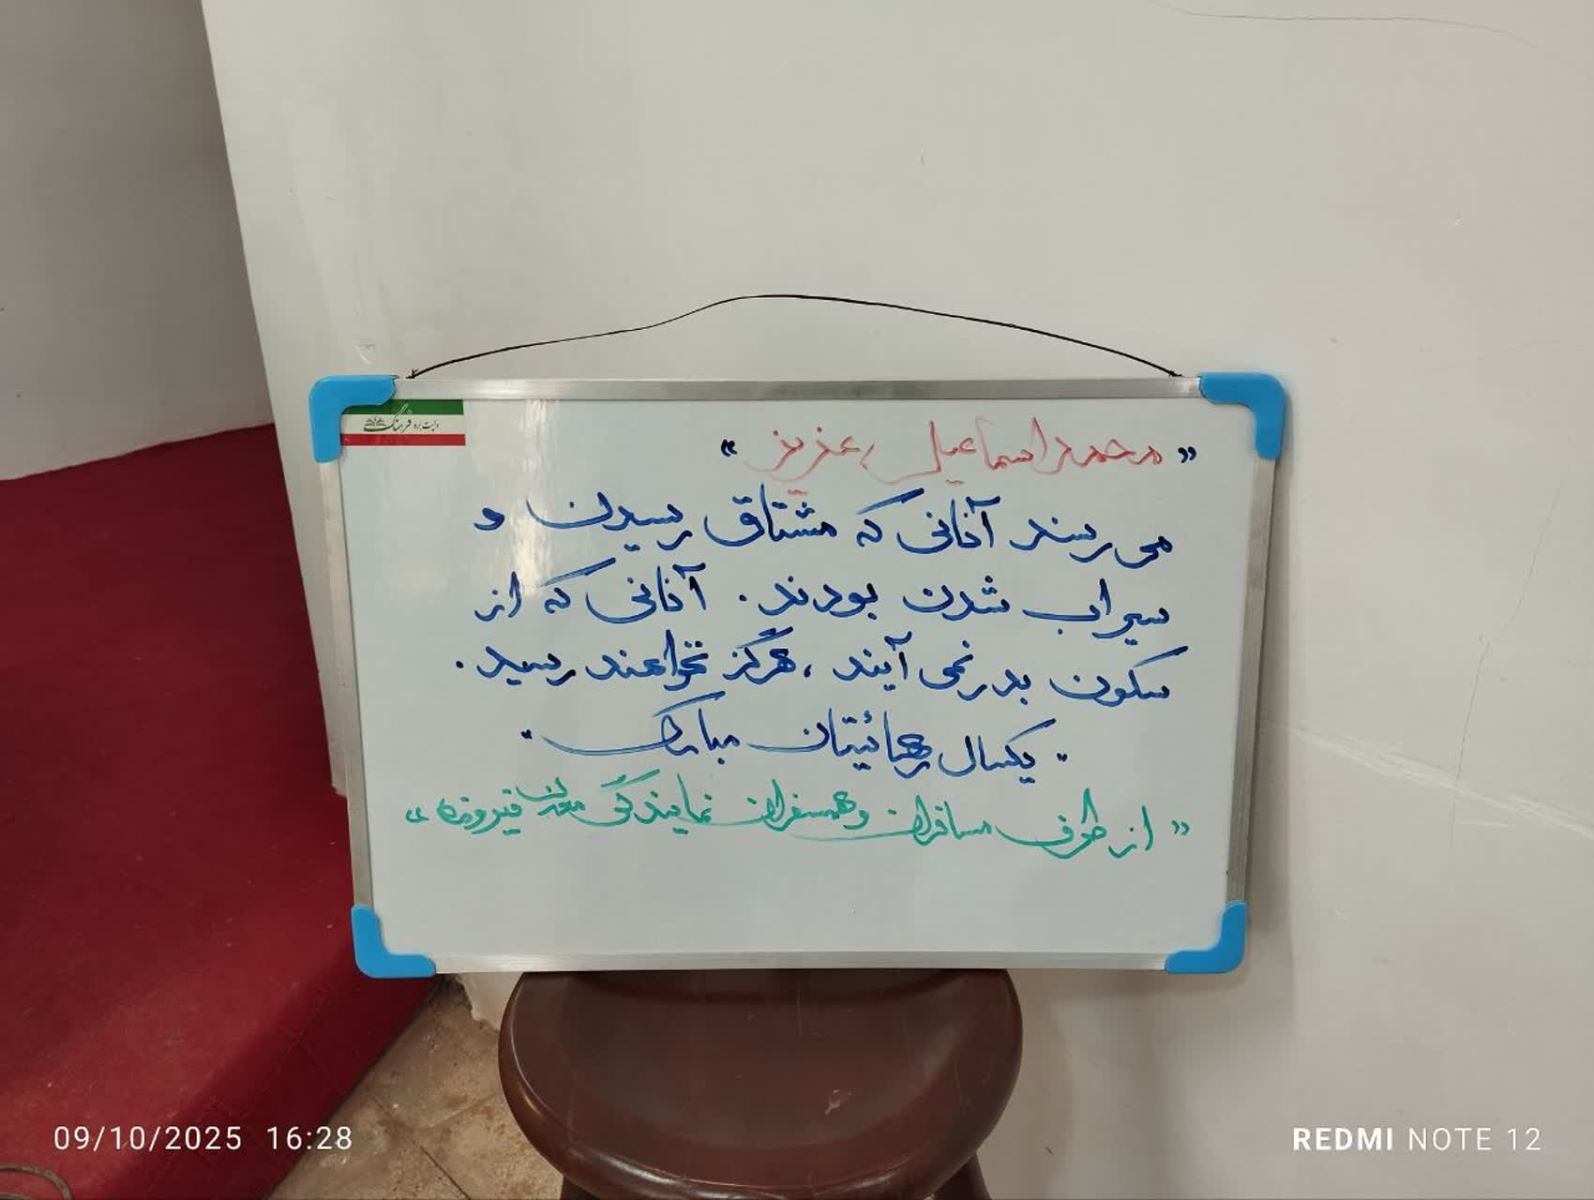 « محمد اسماعیل عزیز »
می رسند آنانی که مشتاق رسیدن و
سیراب شدن بودند. آنانی که از
سکون بدر نمی آیند، هرگز نخواهند رسید.
" یکسال رهائیتان مبارک "
« از طرف مسافران و همسفران نمایندگی معدن فیروزه »
فرهنگ
09/10/2025 16:28
REDMI NOTE 12